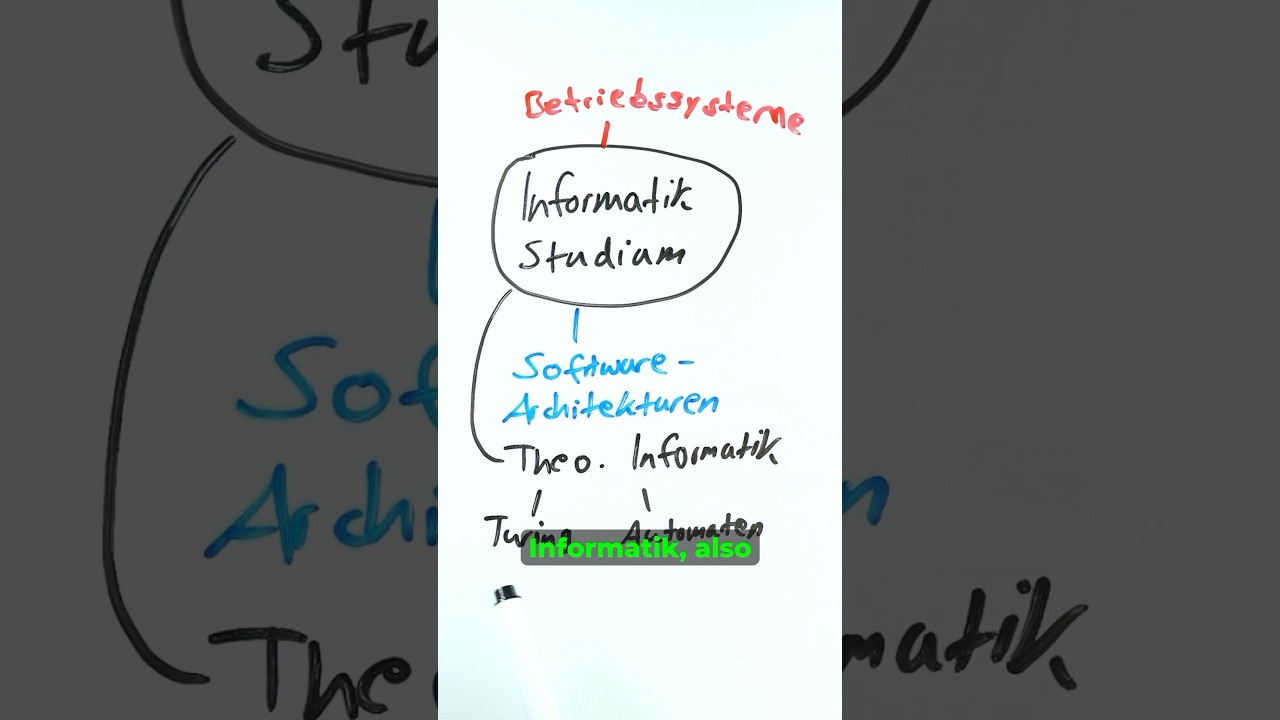 Betriebssysteme
Informatik
Studium
Software-
Architekturen
Theo. Informatik
Turing Automaten
Informatik, also